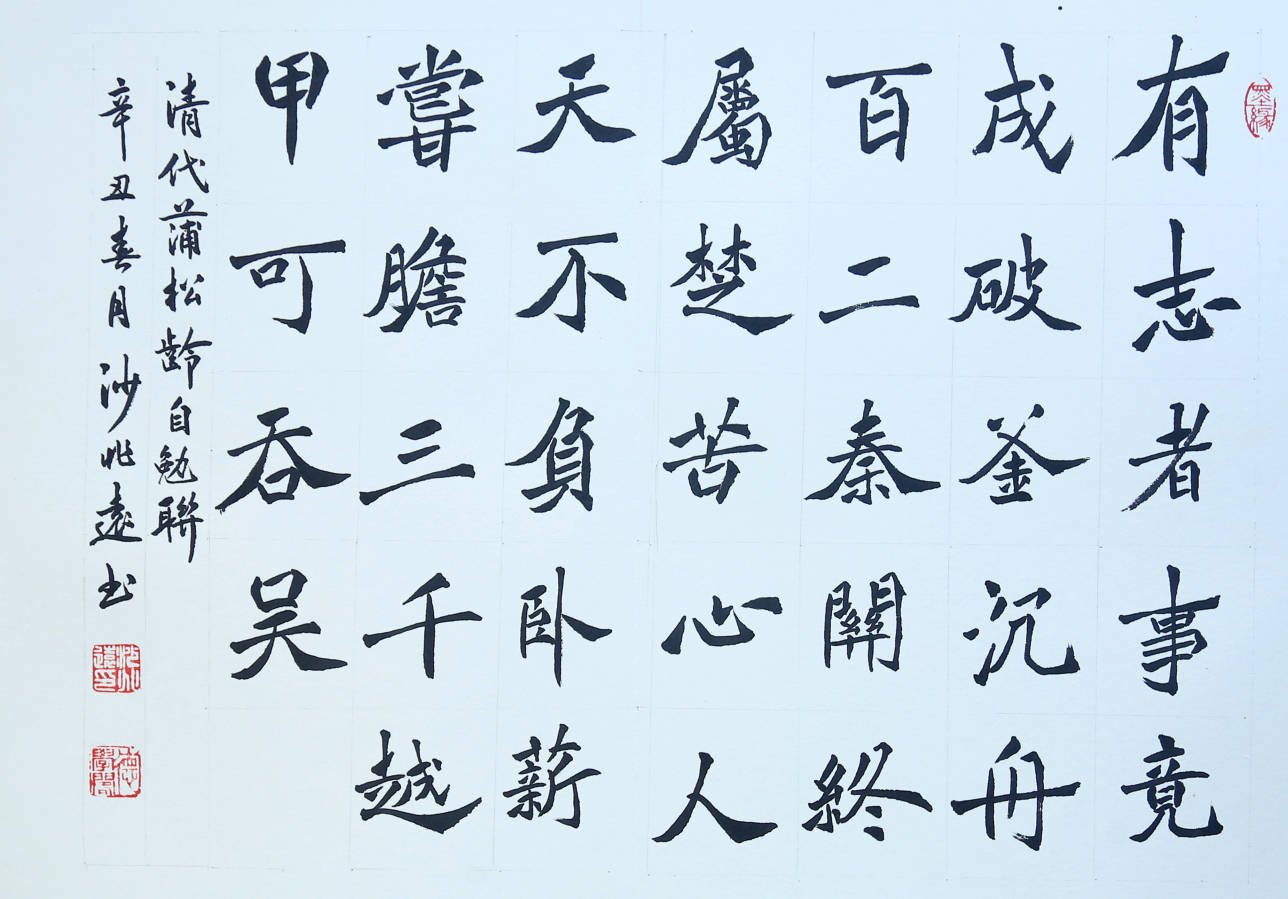 有志者事竟
成破釜沉舟
百二秦關終
屬楚苦心人
天不負卧薪
嘗膽三千越
甲可吞吴
清代蒲松齡自勉聯
辛丑春月沙兆遠书
墨緣